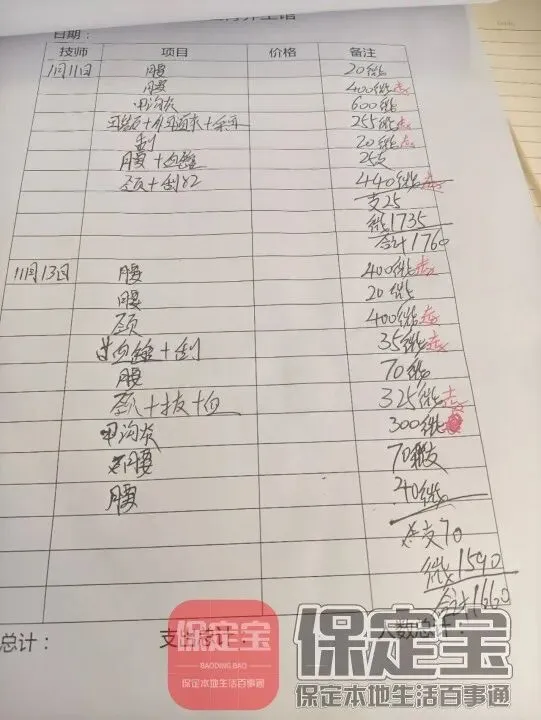 日期：
技师 项目 价格 备注
11月11日 腰 20微
腰 400微去
甲沟炎 600微
255微去
刮 20微去
腰+血 25支
颈+刮x2 440微去
支25
微1735
合计1760
11月13日 腰 400微去
腰 20微
颈 400微去
+刮 35微去
腰 70微
颈+拔+血 325微去
甲沟炎 300微
腰 70支
腰 240微
支70
微1590
合计1660
总计： 支出总计： 人数总计：
保定宝
BAODING.BAO
保定本地生活百事通
保定宝
保定本地生活百事通